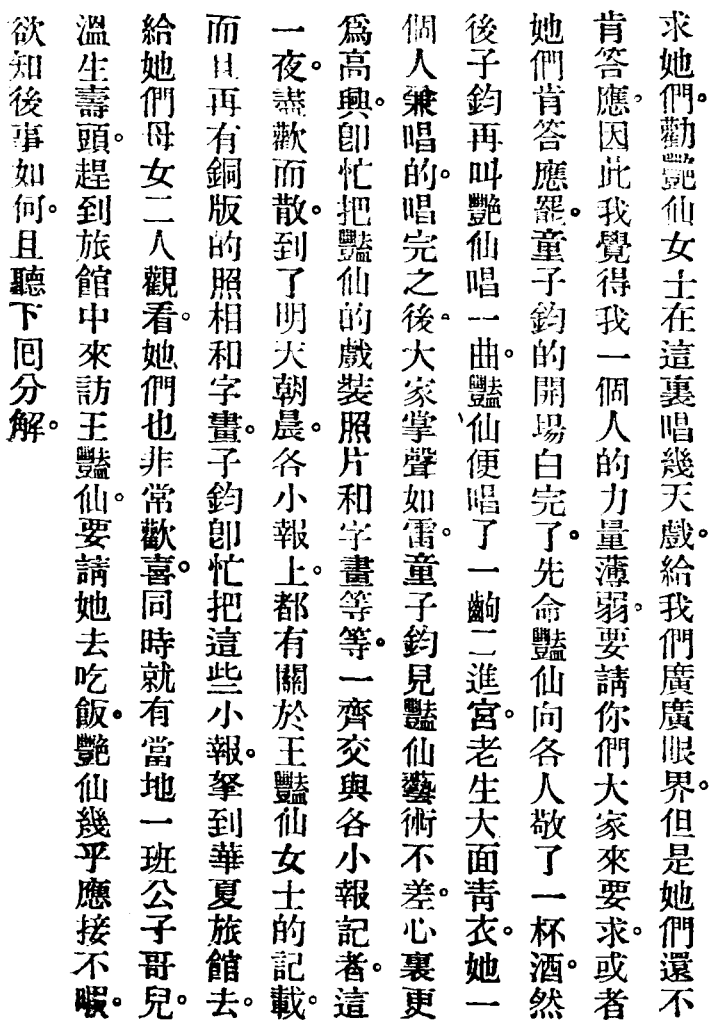 求她們。勸艷仙女士在這裏唱幾天戲。給我們廣廣眼界。但是她們還不
肯答應。因此我覺得我一個人的力量薄弱。要請你們大家來要求。或者
她們肯答應罷。童子鈞的開場白完了。先命豔仙向各人敬了一杯酒。然
後子鈞再叫艷仙唱一曲。豔仙便唱了一齣二進宮。老生大面靑衣。她一
個人兼唱的。唱完之後。大家掌聲如雷。童子鈞見豔仙藝術不差。心裏更
爲高興。卽忙把豔仙的戲裝照片和字畫等等。一齊交與各小報記者。這
一夜。盡歡而散。到了明天朝晨。各小報上。都有關於王豔仙女士的記載。
而且再有銅版的照相和字畫。子鈞卽忙把這些小報。拏到華夏旅館去。
給她們母女二人觀看。她們也非常歡喜。同時就有當地一班公子哥兒。
溫生壽頭。趕到旅館中來訪王豔仙。要請她去吃飯。艷仙幾乎應接不暇。
欲知後事如何。且聽下囘分解。